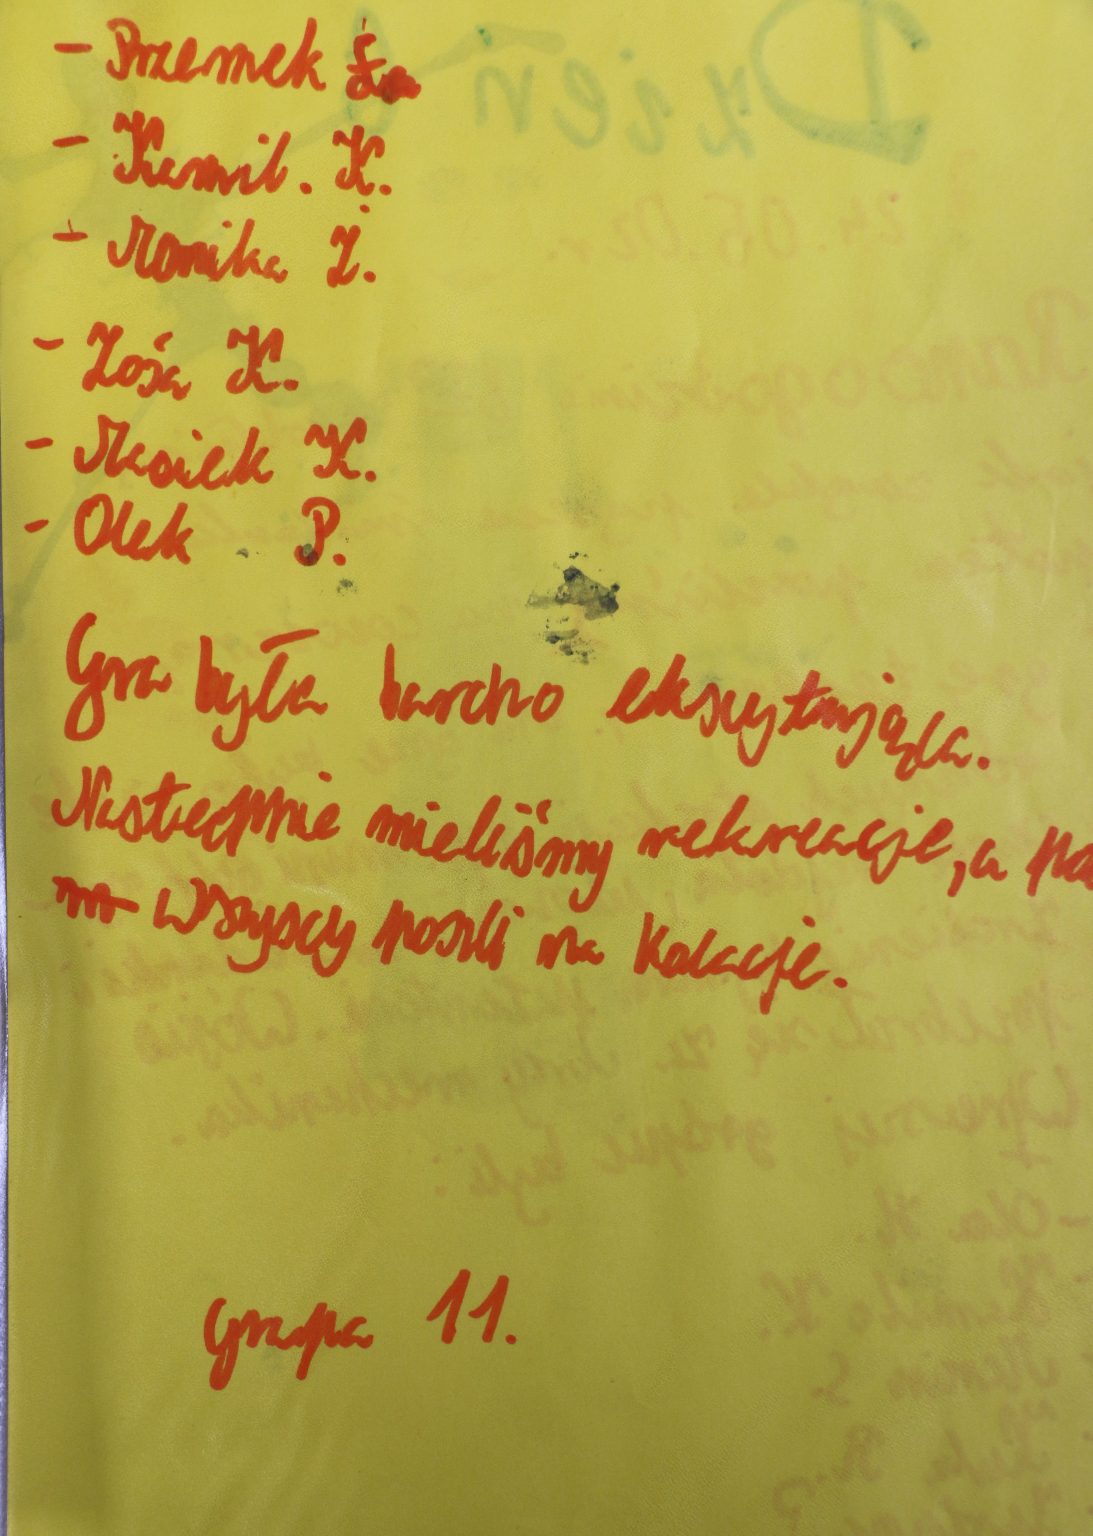 - Przemek Ł
- Kamil. K.
- Monika Ż.
- Zosia K.
- Maciek K.
- Olek P.
Gra była bardzo ekscytująca.
Następnie mieliśmy rekreacje, a po
wszyscy poszli na kolacje.
Grupa 11.